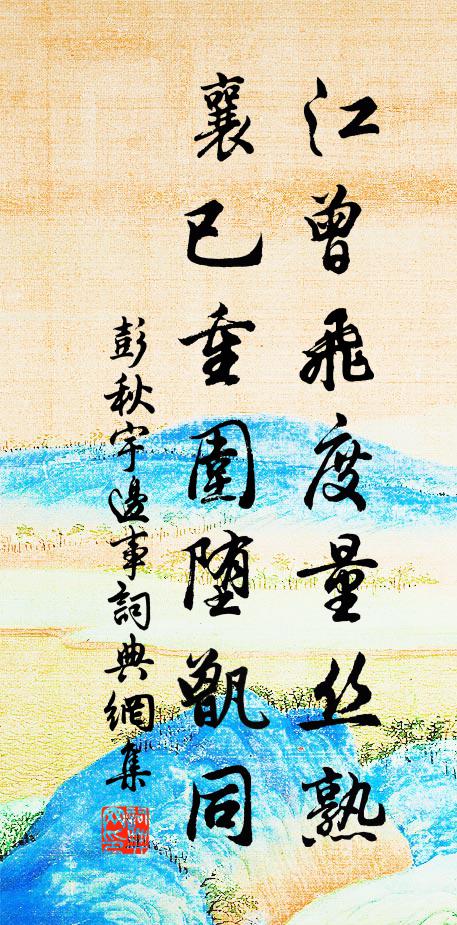 江曾飛度量丝熟
襄已重圍堕甑同
彭秋宇邊事詞典網集